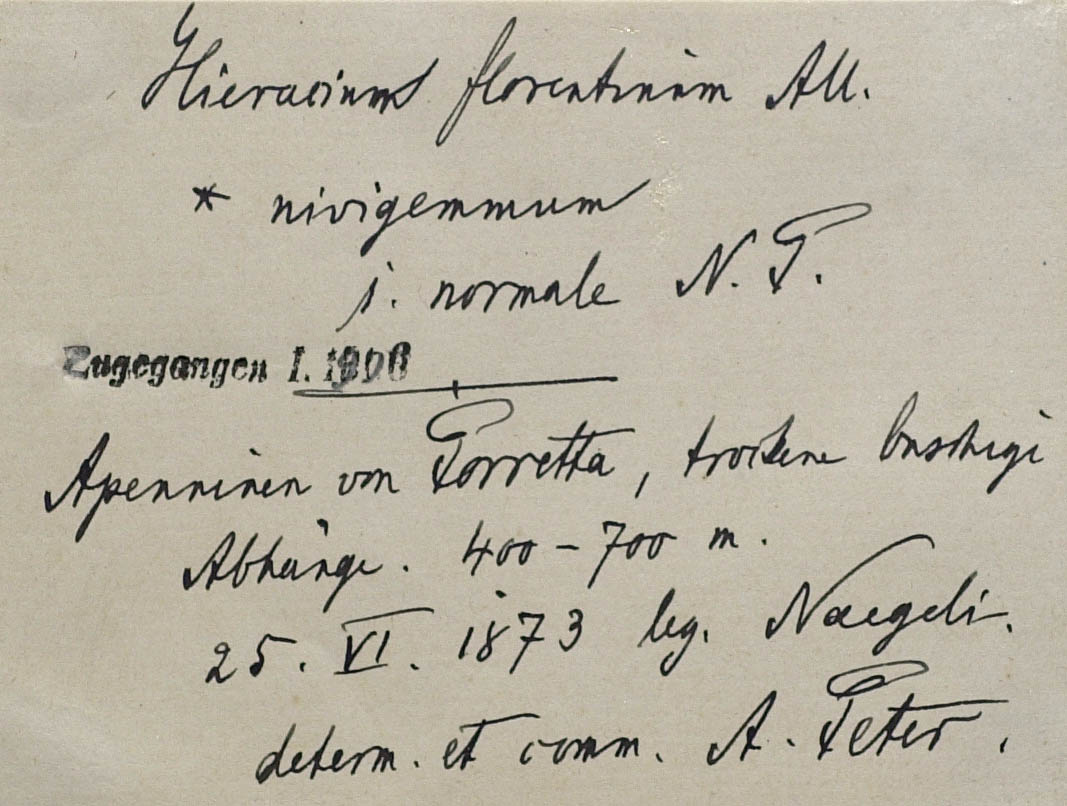 Hieracium florentinum All.
* nivigemmum
1. normale N. P.
Zugegangen I. 1906
Apenninen von Porretta, trockene buschige
Abhänge. 400 – 700 m.
25. VI. 1873 leg. Naegeli.
determ. et comm. A. Peter.